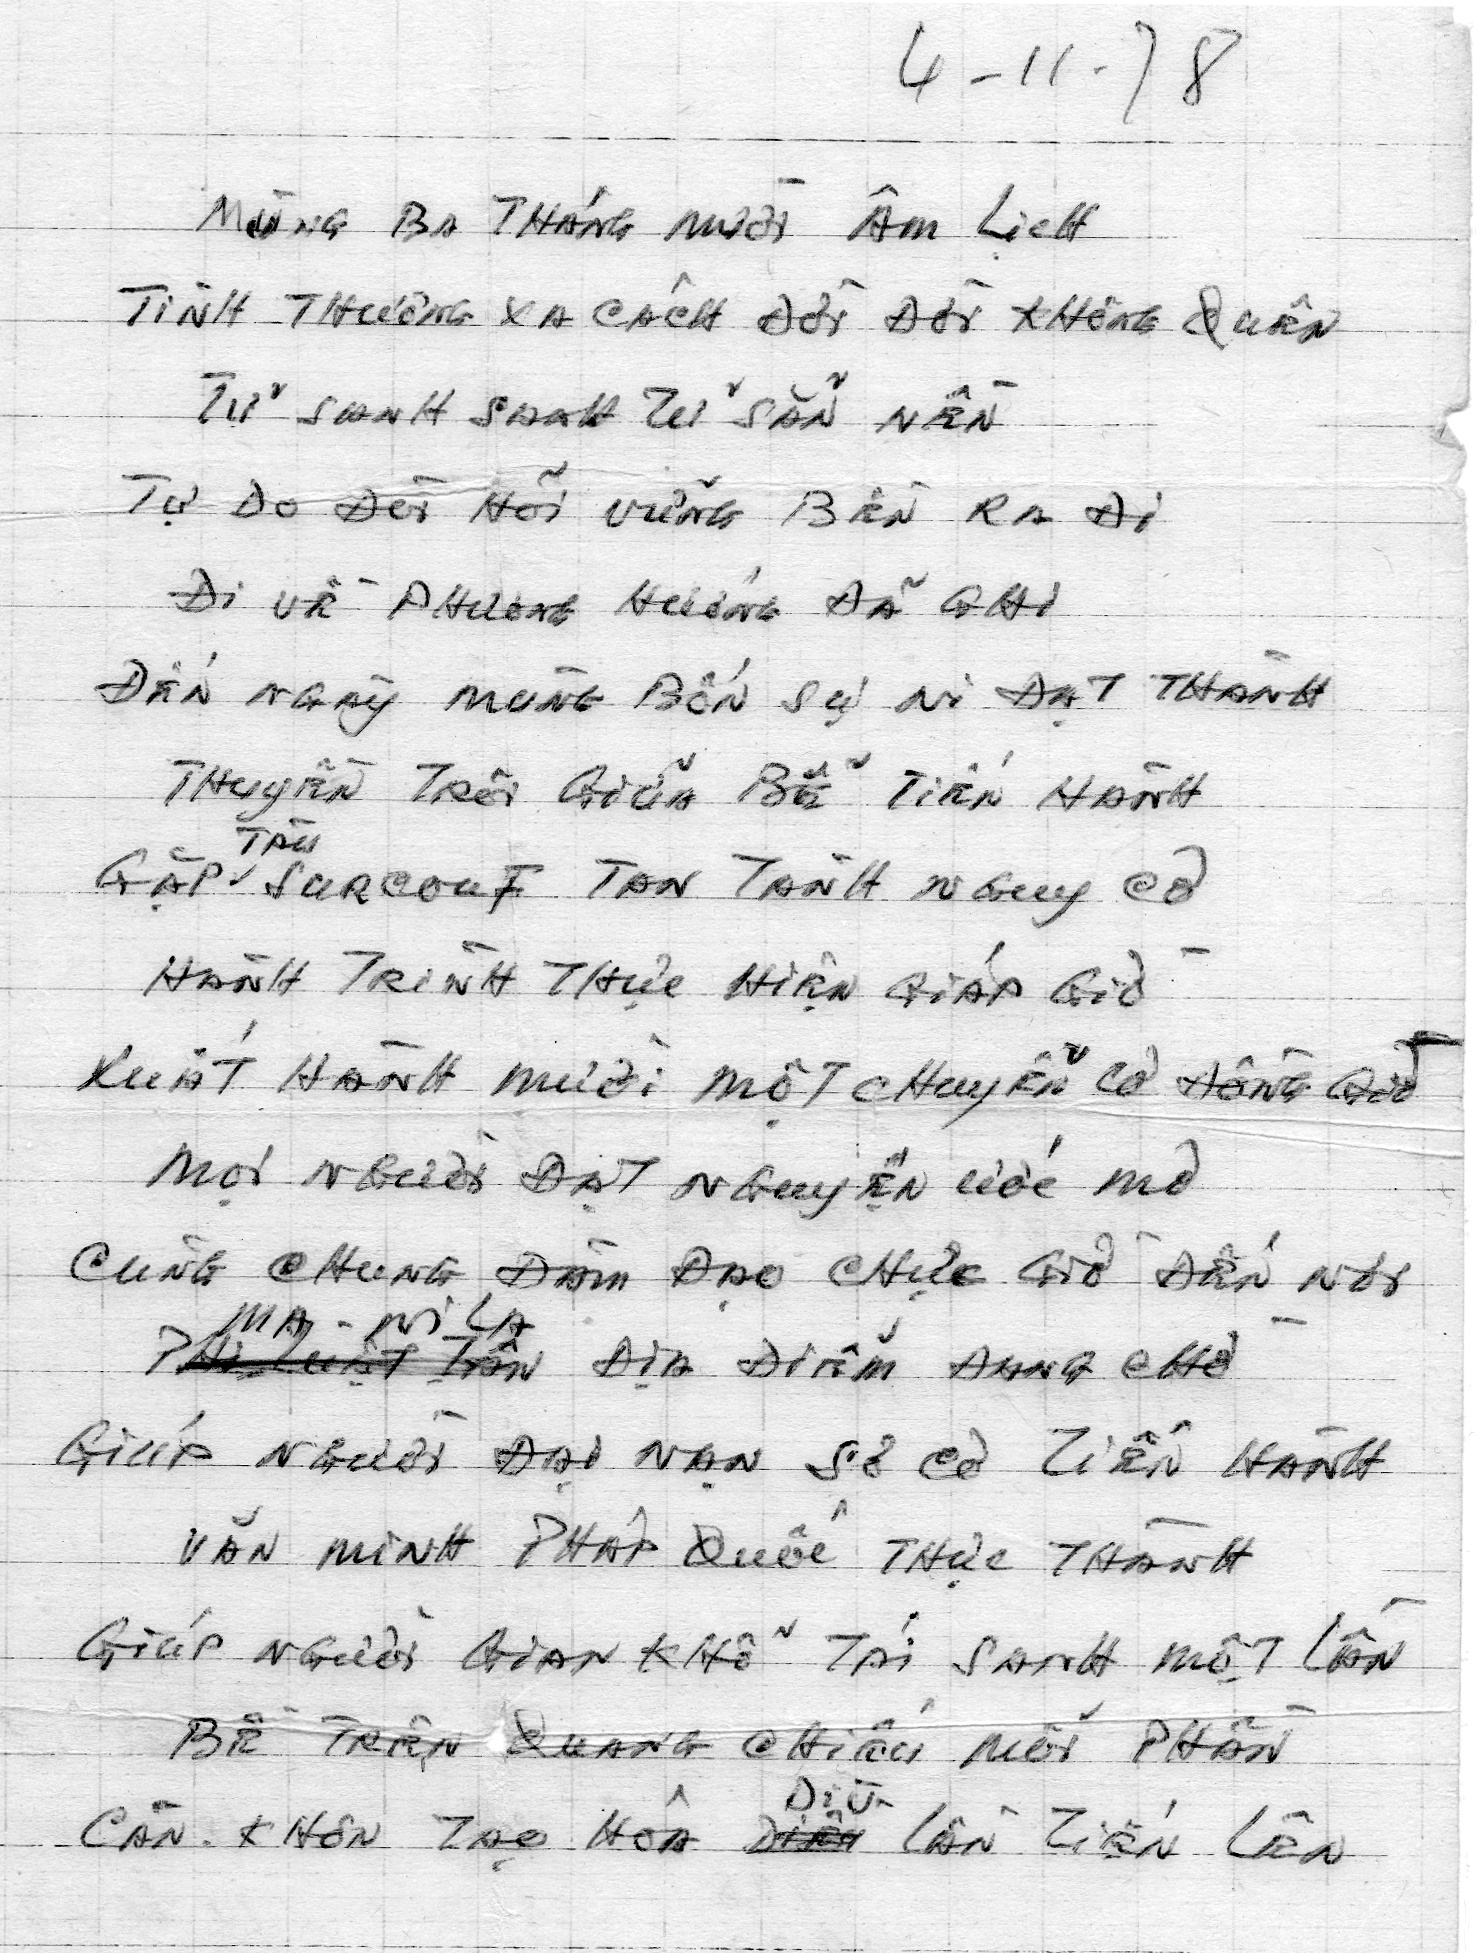 4-11-78
MÙNG BA THÁNG MƯỜI ÂM LỊCH
TÌNH THƯƠNG XA CÁCH ĐỜI ĐỜI KHÔNG QUÊN
TỬ SANH SANH TỬ SẴN NỀN
TỰ DO ĐÒI HỎI VƯỢNG BỀN RA ĐI
ĐI VỀ PHƯƠNG HƯỚNG ĐÃ GHI
ĐẾN NGÀY MÙNG BỐN SỰ NI ĐẠT THÀNH
THUYỀN TRÔI GIỮA BỂ TIẾN HÀNH
GẶP TÀU SURCOUF TAN TÀNH NGUY CƠ
HÀNH TRÌNH THỰC HIỆN GIÁP GIỜ
XUẤT HÀNH MƯỜI MỘT CHUYỂN CƠ ĐỒNG GIỜ
MỌI NGƯỜI ĐẠT NGUYỆN ƯỚC MƠ
CÙNG CHUNG ĐÀM ĐẠO CHỰC GIỜ ĐẾN NƠI
MA-NI LA
PHI LUẬT TÂN ĐỊA ĐIỂM ĐANG CHỜ
GIÚP NGƯỜI ĐẠI NẠN SỢ CƠ TIẾN HÀNH
VĂN MINH PHÁP QUỐC THỰC THÀNH
GIÚP NGƯỜI GIAN KHỔ TÁI SANH MỘT LẦN
BỀ TRÊN QUANG CHIẾU MỖI PHẦN
CÀN KHÔN TẠO HÓA DIỀU DÌU LẦN TIẾN LÊN